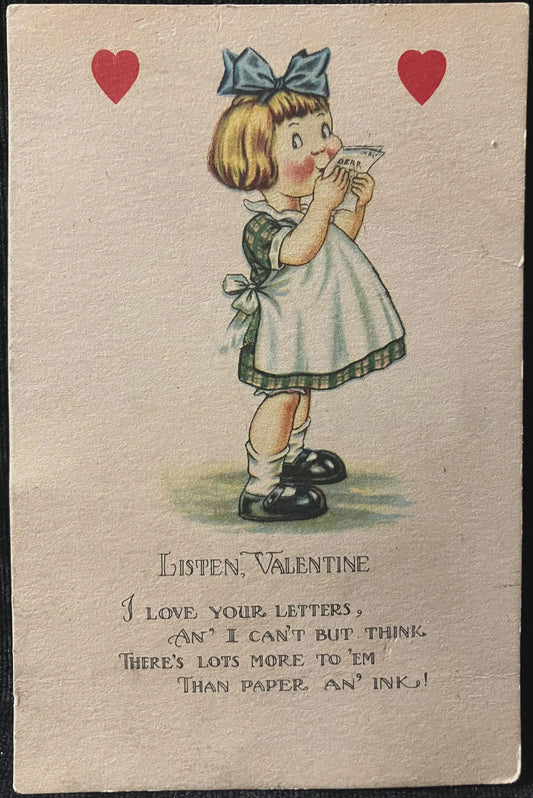 DEAR
LISTEN, VALENTINE
I LOVE YOUR LETTERS,
AN' I CAN'T BUT THINK
THERE'S LOTS MORE TO 'EM
THAN PAPER AN' INK!